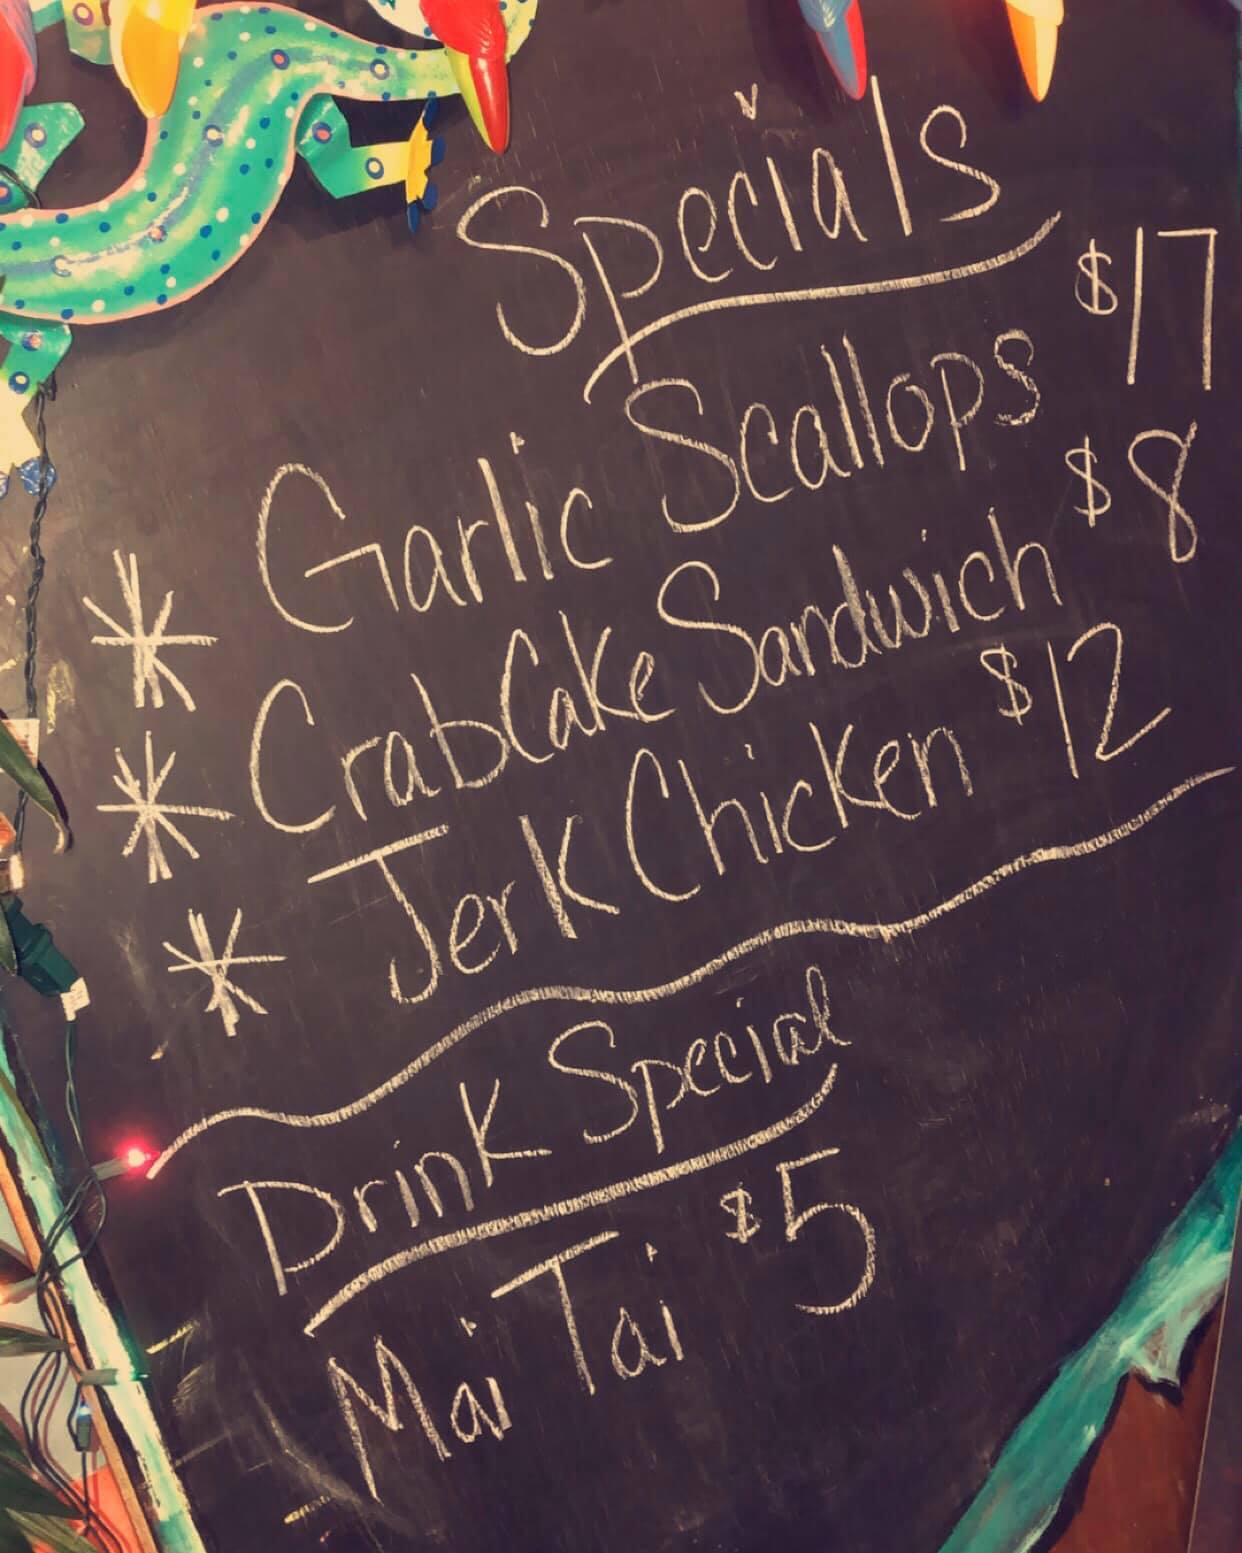 Specials
* Garlic Scallops $17
* CrabCake Sandwich $8
* Jerk Chicken $12
Drink Special
Mai Tai $5